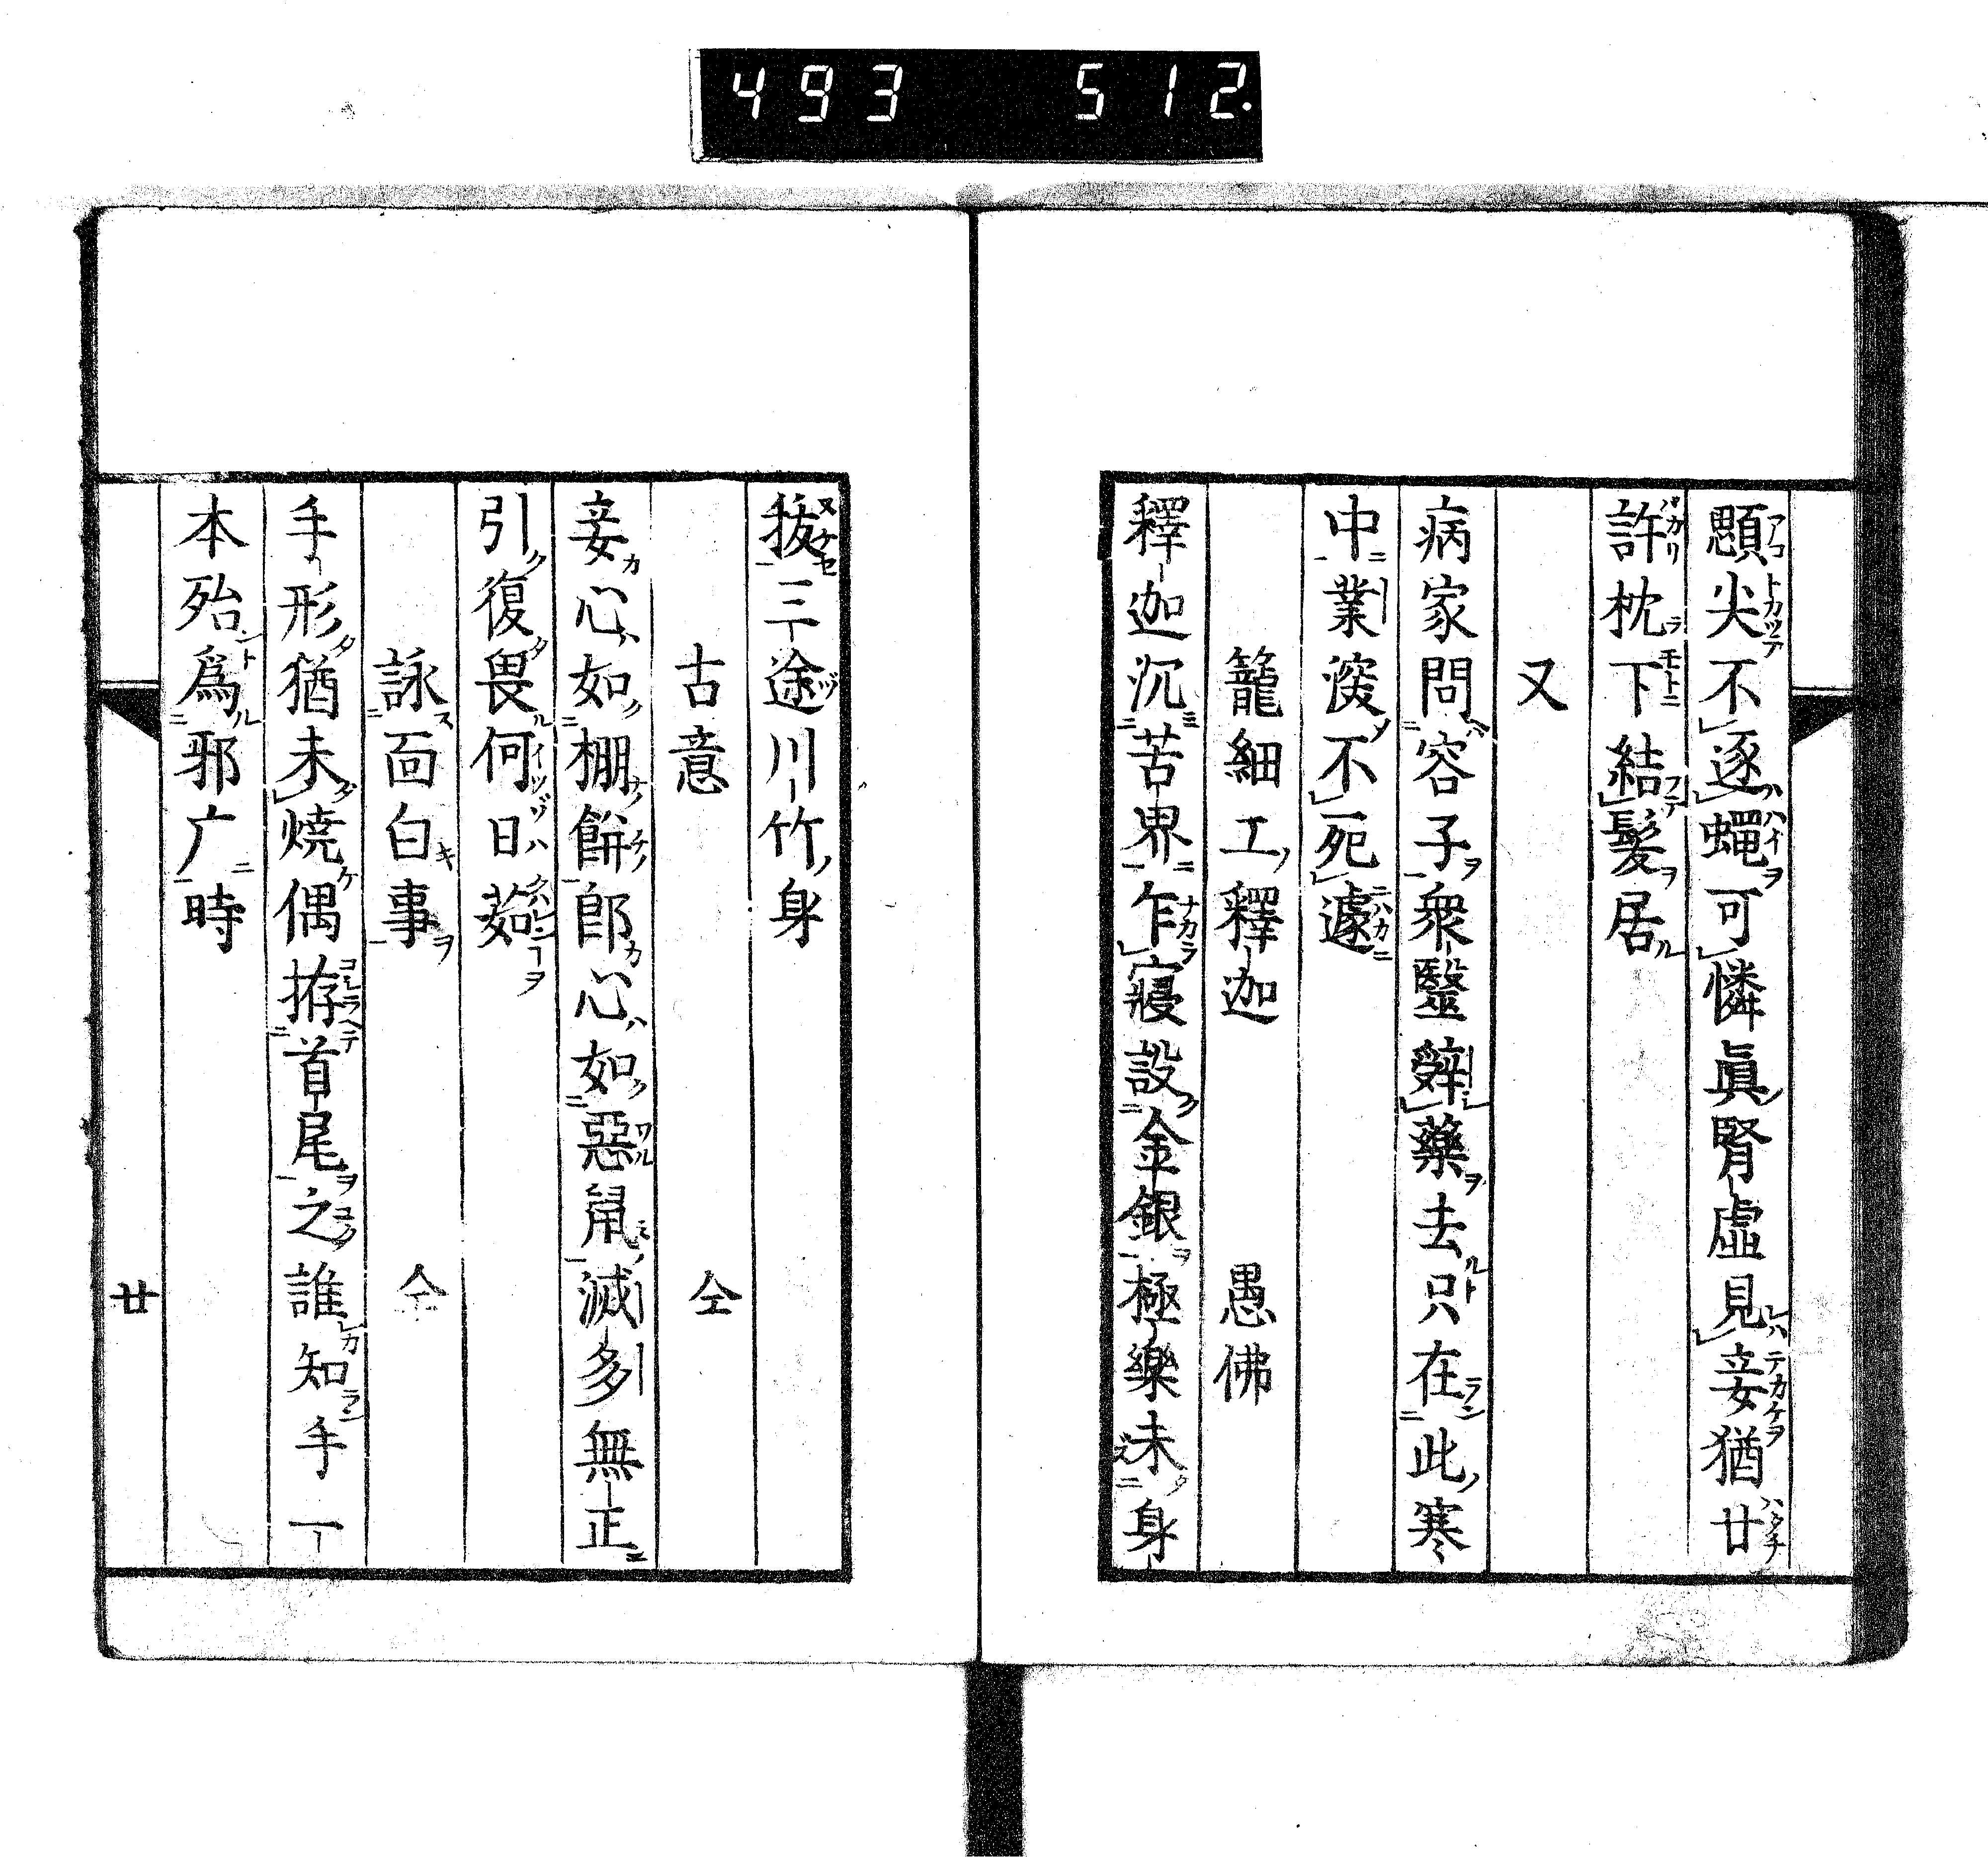 493 512.
顋尖不逐蠅可憐眞腎虛見妾猶廿
許枕下結髪居
又
病家問容子衆醫辭藥去只在此寒
中業深不死遽
籠細工釋迦 愚佛
釋迦沉苦界乍寢設金銀極樂未身
拔三途川竹身
古意 仝
妾心如棚餅郎心如惡鼠滅多無正
引復畏何日
詠面白事 仝
手形猶未燒偶拵首尾之誰知手一
本殆爲邪广時
廿